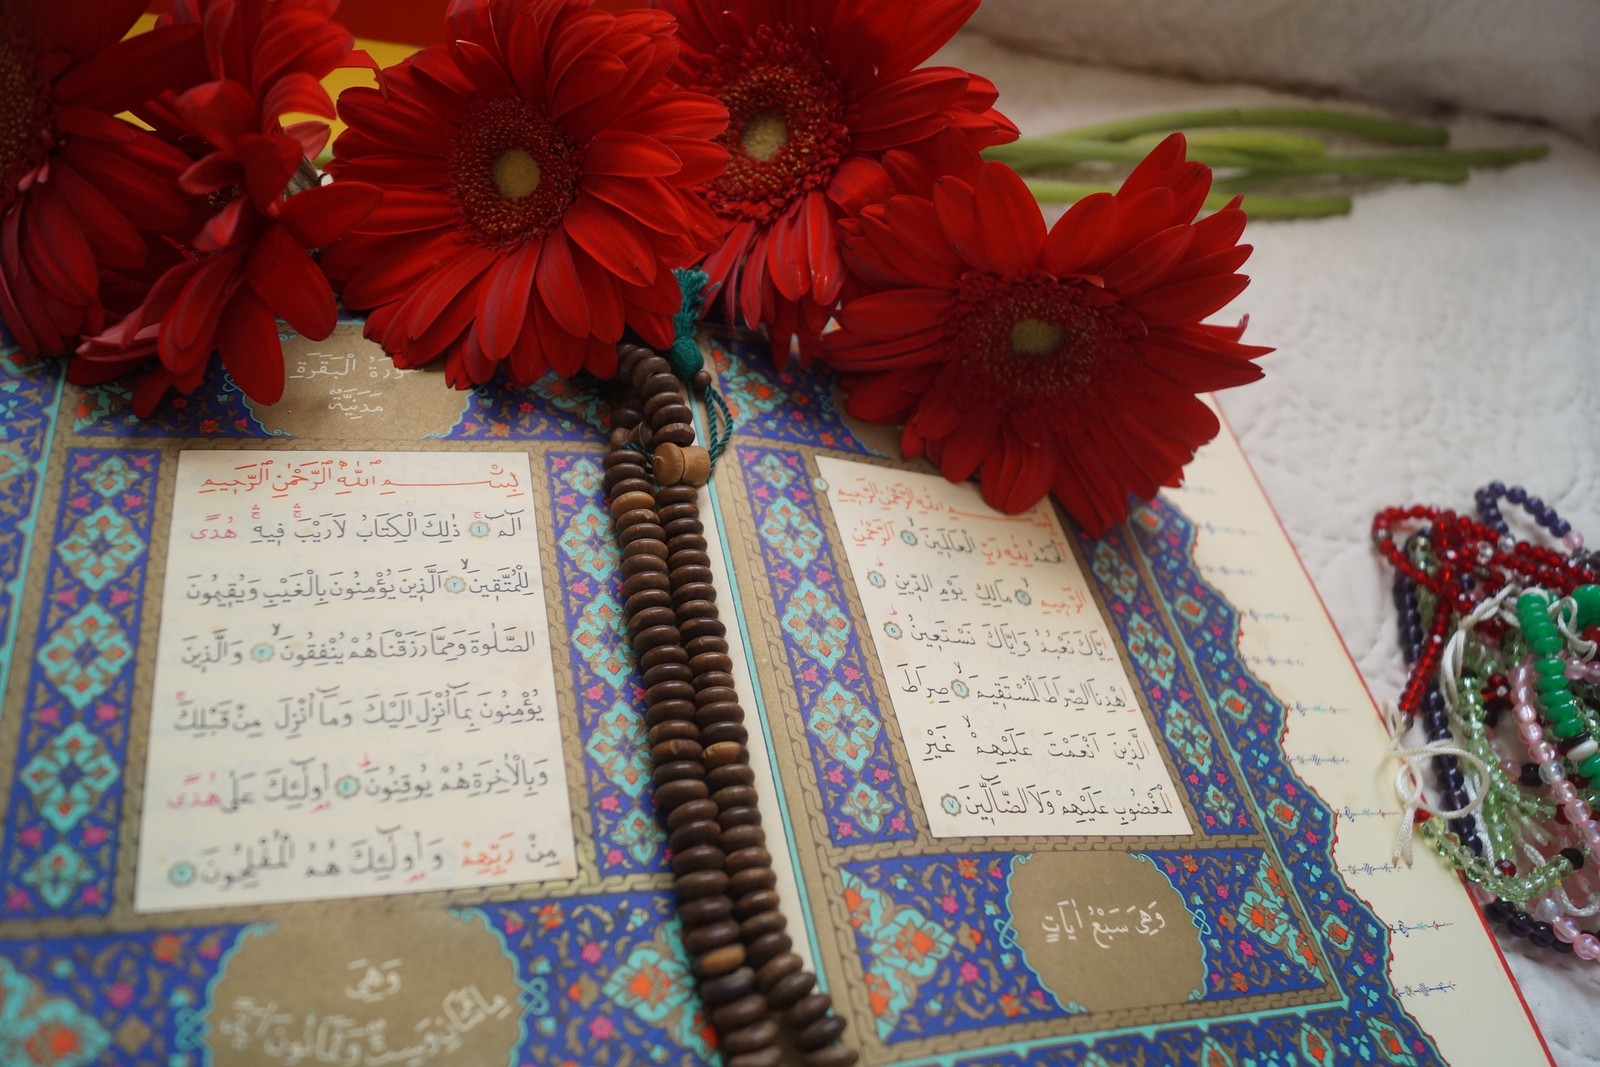 بِسْمِ اللّٰهِ الرَّحْمٰنِ الرَّحِيمِ
اَلْحَمْدُ لِلّٰهِ رَبِّ الْعَالَمِينَ ٢ اَلرَّحْمٰنِ
الرَّحِيمِ ٣ مَالِكِ يَوْمِ الدِّينِ ٤
اِيَّاكَ نَعْبُدُ وَاِيَّاكَ نَسْتَعِينُ ٥
اِهْدِنَا الصِّرَاطَ الْمُسْتَقِيمَ ٦ صِرَاطَ
الَّذِينَ اَنْعَمْتَ عَلَيْهِمْ غَيْرِ
الْمَغْضُوبِ عَلَيْهِمْ وَلَا الضَّالِّينَ ٧
وَهِىَ سَبْعُ اٰيَاتٍ
الْبَقَرَةِ
مَدَنِيَّةٌ
بِسْمِ اللّٰهِ الرَّحْمٰنِ الرَّحِيمِ
الٓمٓ ١ ذٰلِكَ الْكِتَابُ لَا رَيْبَ فِيهِ هُدًى
لِلْمُتَّقِينَ ٢ اَلَّذِينَ يُؤْمِنُونَ بِالْغَيْبِ وَيُقِيمُونَ
الصَّلٰوةَ وَمِمَّا رَزَقْنَاهُمْ يُنْفِقُونَ ٣ وَالَّذِينَ
يُؤْمِنُونَ بِمَٓا اُنْزِلَ اِلَيْكَ وَمَٓا اُنْزِلَ مِنْ قَبْلِكَ
وَبِالْاٰخِرَةِ هُمْ يُوقِنُونَ ٤ اُولٰٓئِكَ عَلٰى هُدًى
مِنْ رَبِّهِمْ وَاُولٰٓئِكَ هُمُ الْمُفْلِحُونَ ٥
وَهِىَ
مِائَتَانِ وَسِتٌّ وَثَمَانُونَ اٰيَةً